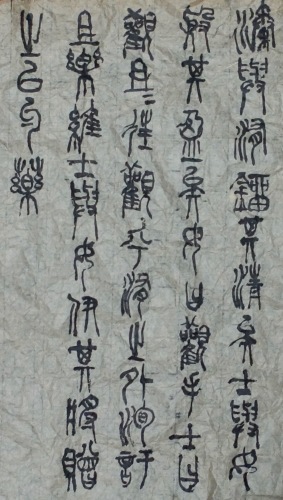 溱與洧鎦其清矣士與女
殷其盈矣女曰觀乎士曰
觀且〻往觀乎洧之外洵訏
且樂維士與女伊其將贈
之以勺藥